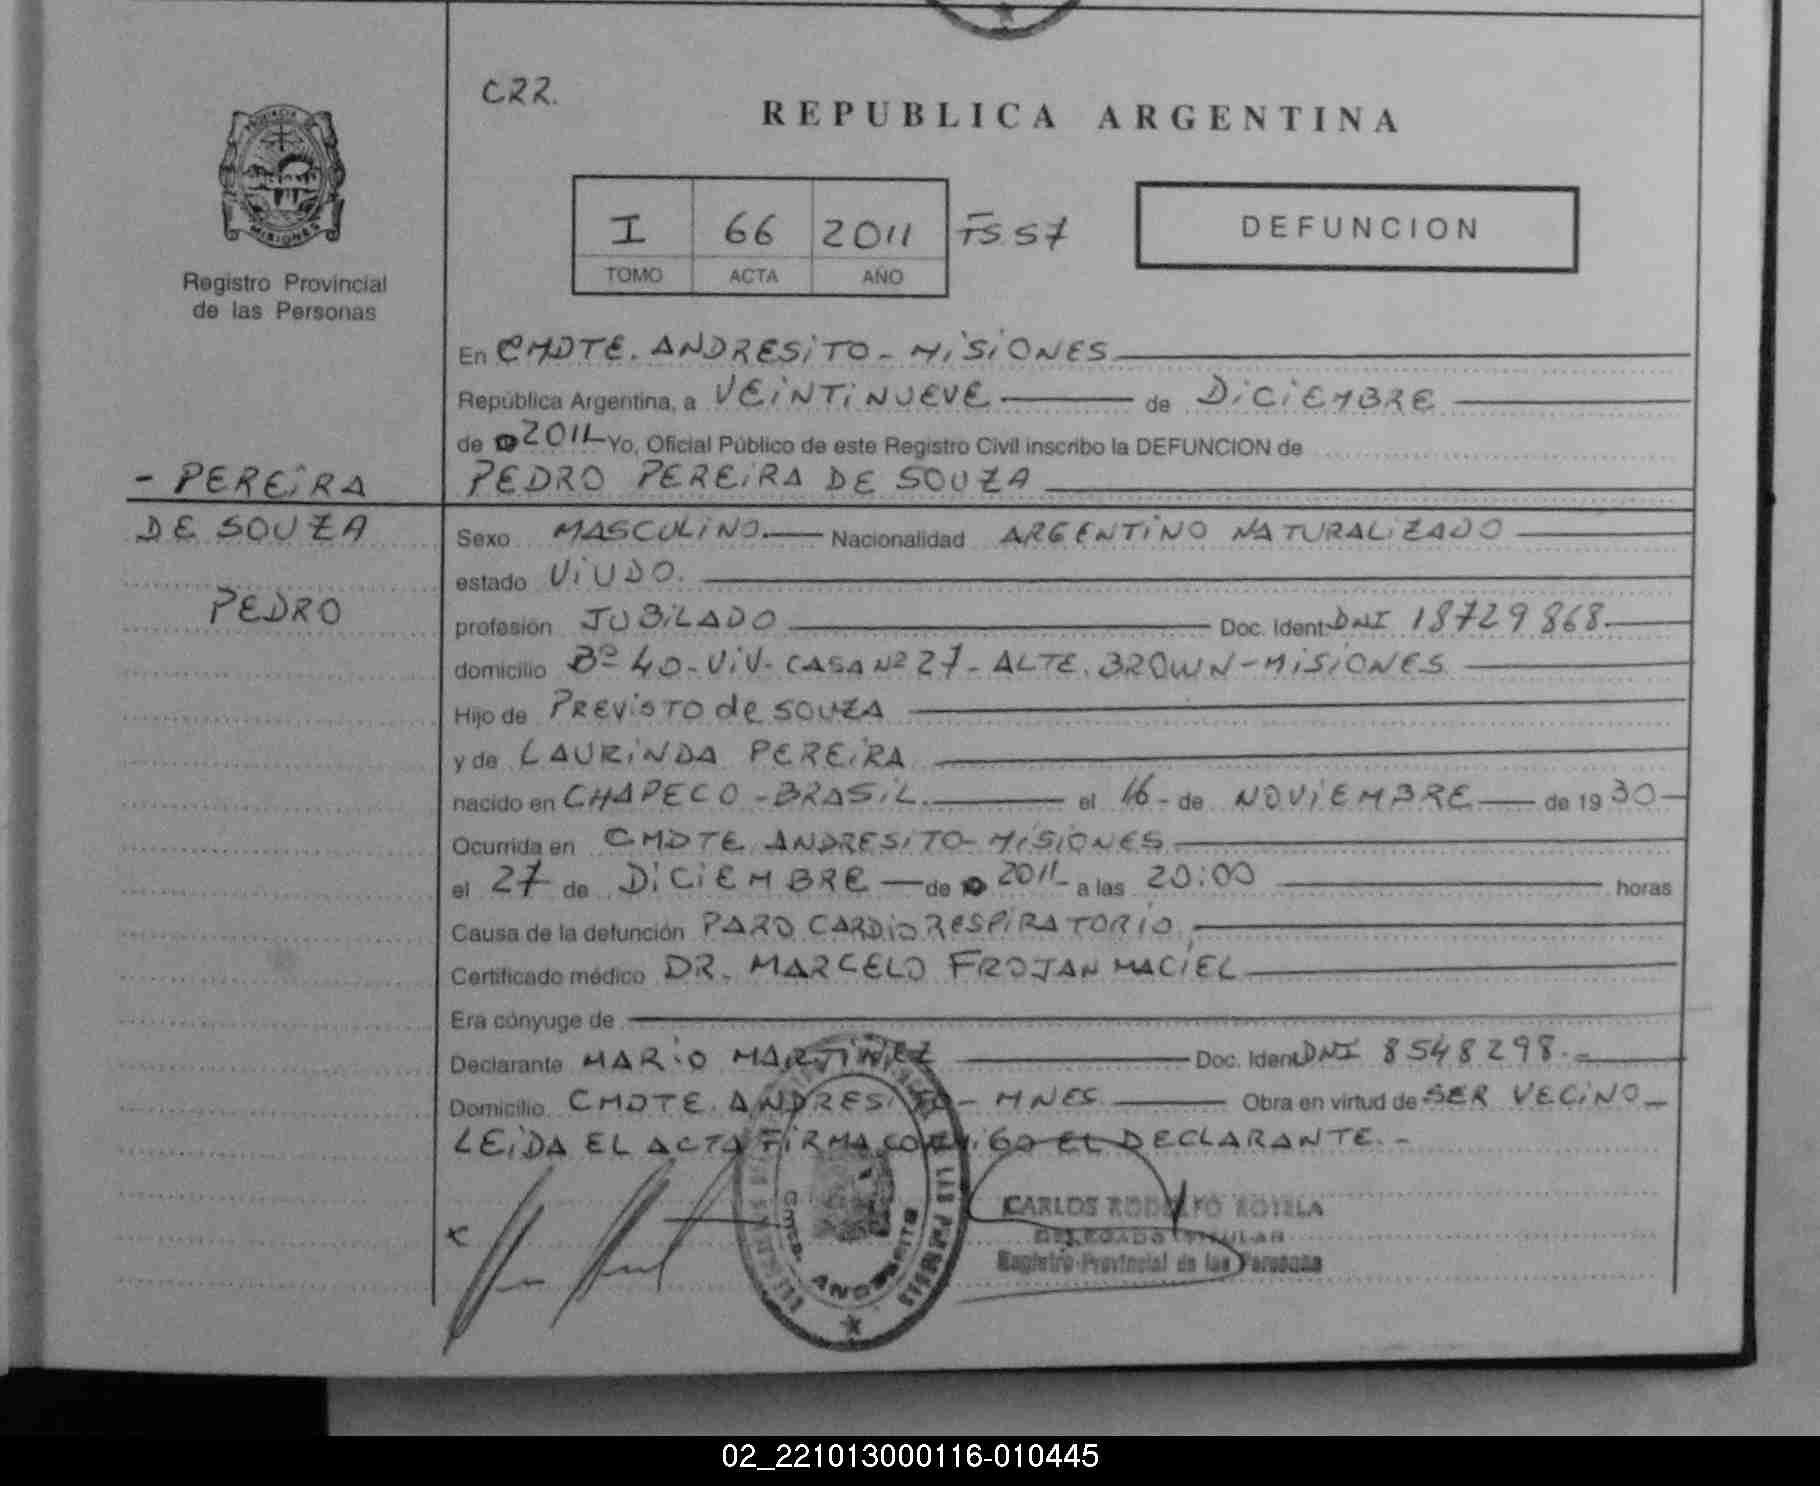 C22.
REPUBLICA ARGENTINA
I 66 2011 FS 57
TOMO ACTA AÑO
DEFUNCION
MISIONES
Registro Provincial
de las Personas
En CMDTE. ANDRESITO - MISIONES
República Argentina, a VEINTINUEVE de DICIEMBRE
de 2011 Yo, Oficial Público de este Registro Civil inscribo la DEFUNCION de
- PEREIRA
DE SOUZA
PEDRO
PEDRO PEREIRA DE SOUZA
Sexo MASCULINO. Nacionalidad ARGENTINO NATURALIZADO
estado VIUDO.
profesión JUBILADO Doc. Ident. DNI 18729868.
domicilio Bº 40-VIV- CASA Nº 27- ALTE. BROWN-MISIONES
Hijo de PREVISTO de SOUZA
y de LAURINDA PEREIRA
nacido en CHAPECO - BRASIL. el 16 - de NOVIEMBRE de 19 30
Ocurrida en CMDTE ANDRESITO - MISIONES
el 27 de DICIEMBRE de 2011 a las 20:00 horas
Causa de la defunción PARO CARDIO RESPIRATORIO
Certificado médico DR. MARCELO FROJAN MACIEL
Era cónyuge de
Declarante MARIO MARTINEZ Doc. Ident. DNI 8548298.-
Domicilio CMDTE. ANDRESITO - MNES Obra en virtud de SER VECINO
LEIDA EL ACTA FIRMA CONMIGO EL DECLARANTE.-
CARLOS RODOLFO ROTELA
DELEGADO TITULAR
Registro Provincial de las Personas
CMDTE. ANDRESITO
02_221013000116-010445